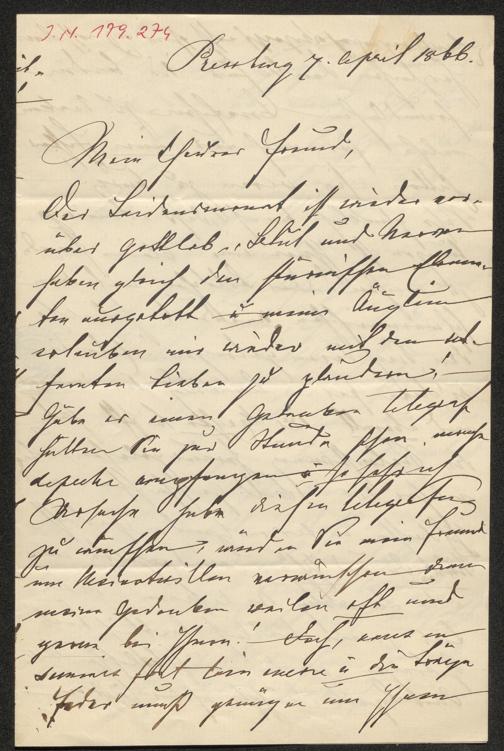 J.N. 179.274
Pressburg 7. April 1866.
Mein theurer Freund,
Der Leidensmonat ist wieder vor-
über gottlob, Blut und Nerven
haben gleich den stürmischen Elemen-
ten ausgetobt u meine Äuglein
erlauben mir wieder mit den ent-
fernten Lieben zu plaudern! –
Gäbe es einen Gedanken Telegraf
hätten Sie zur Stunde schon manche
depeche empfangen u so sehr ich
Ursache habe diesen Telegrafen
zu wünschen, würden Sie mein Freund
ihn verwünschen denn
meine Gedanken weilen oft und
gerne bei Ihnen! Doch,
fort u die träge
Feder muß genügen um Ihnen